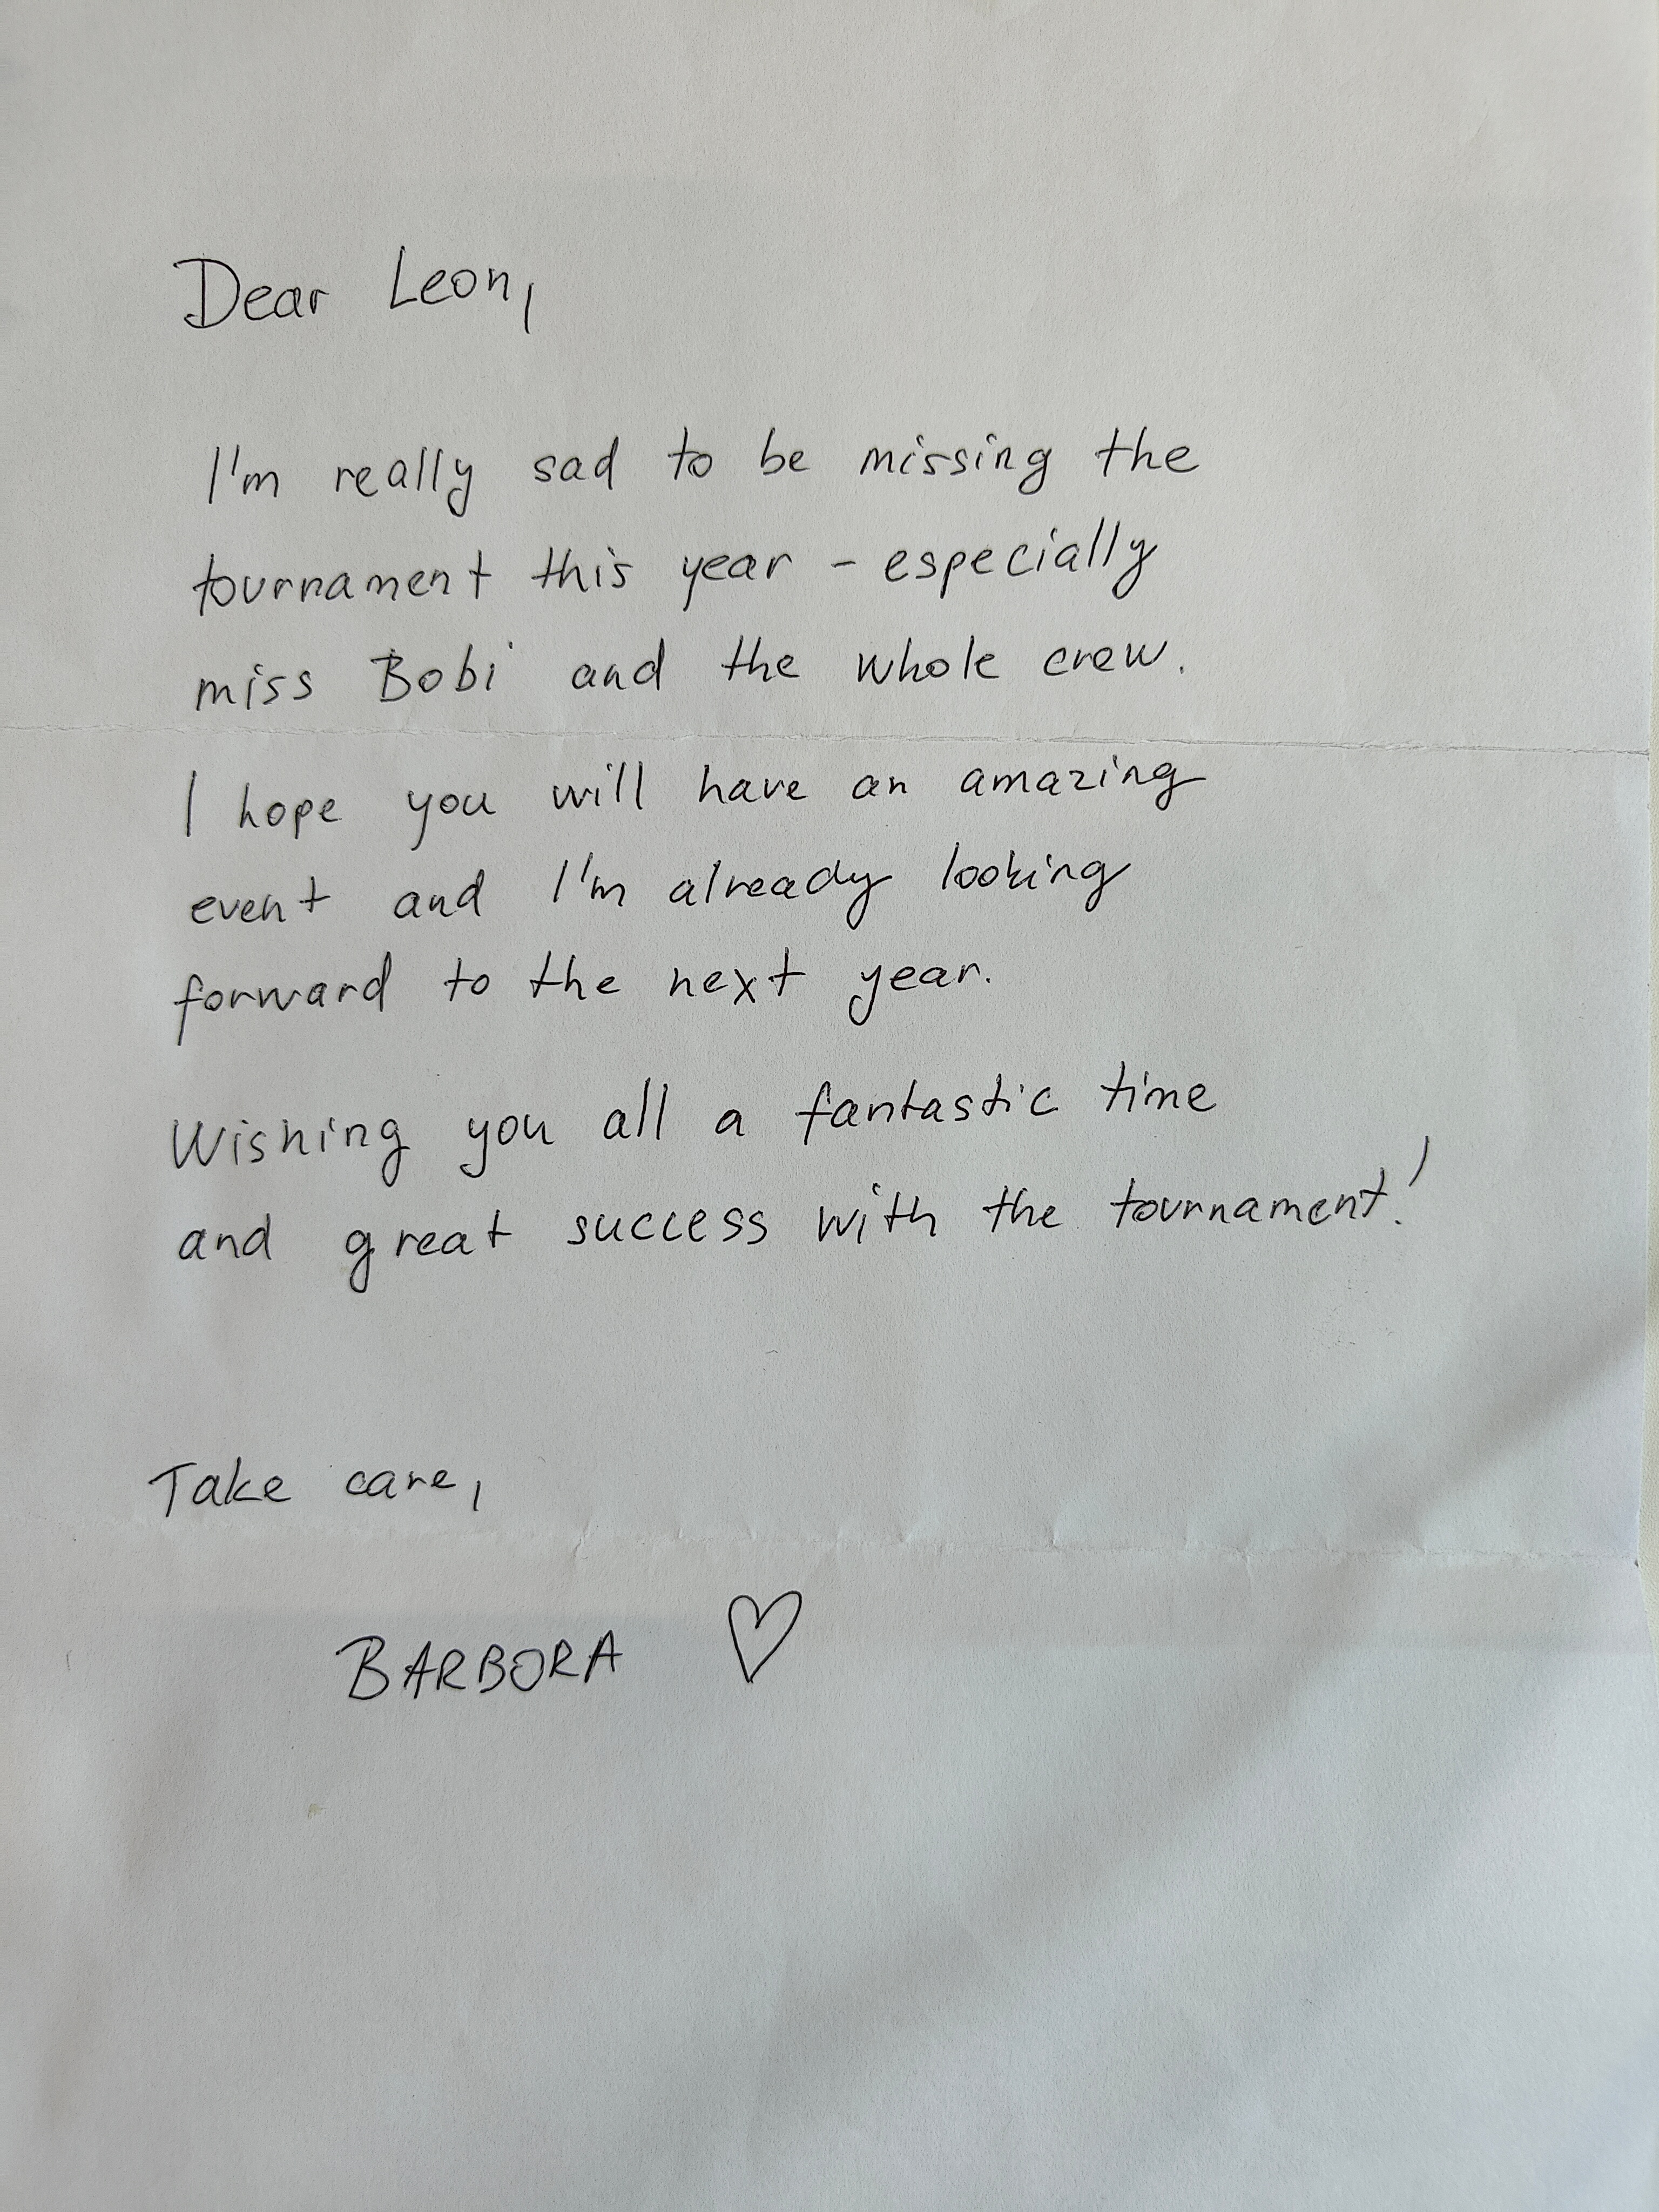 Dear Leon,
I'm really sad to be missing the
tournament this year - especially
miss Bobi and the whole crew.
I hope you will have an amazing
event and I'm already looking
forward to the next year.
Wishing you all a fantastic time
and great success with the tournament!
Take care,
BARBORA ♡